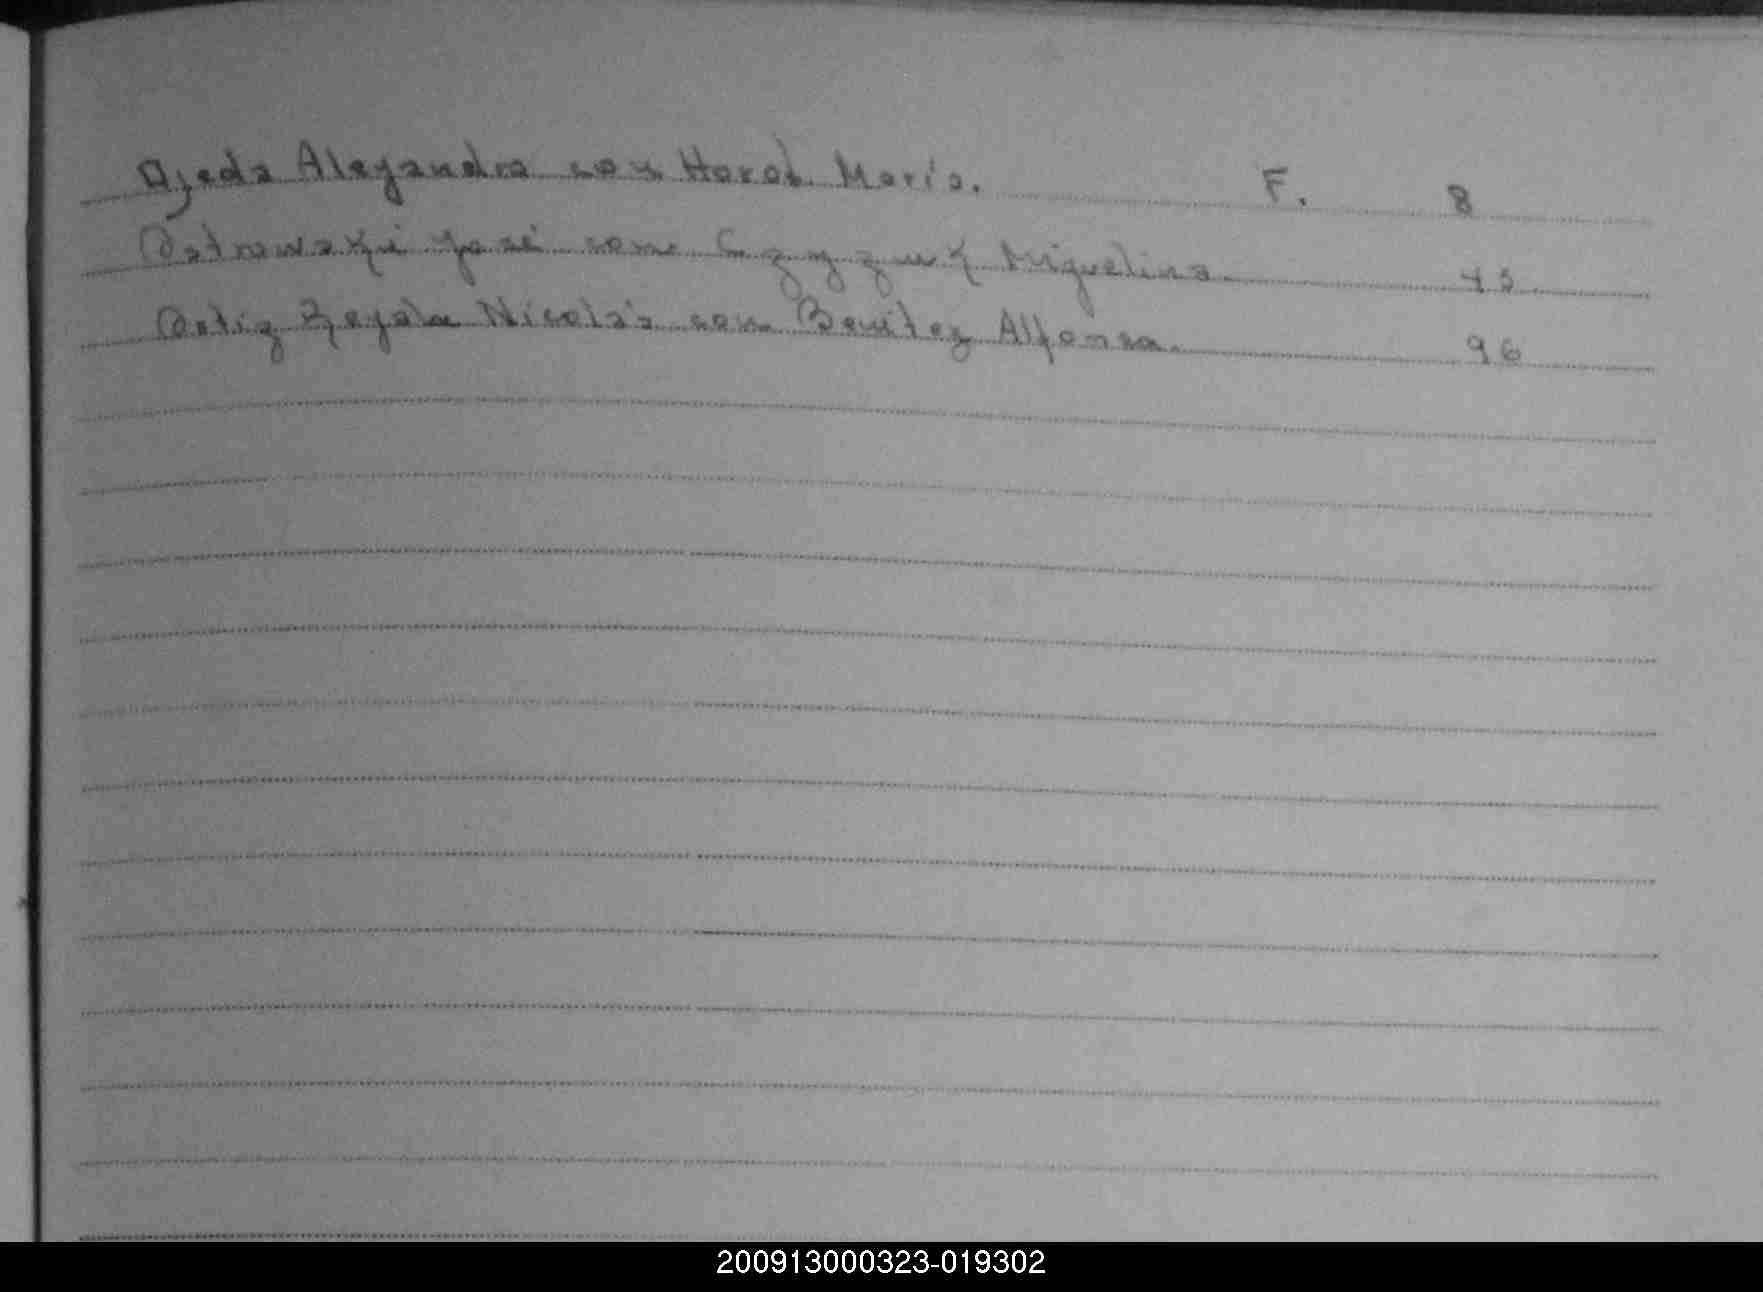 Ojeda Alejandro con Horot María. F. 8
Ostrowski José con Czyzuk Miguelina. 45
Ortiz Zeyala Nicolás con Benítez Alfonsa. 96
200913000323-019302